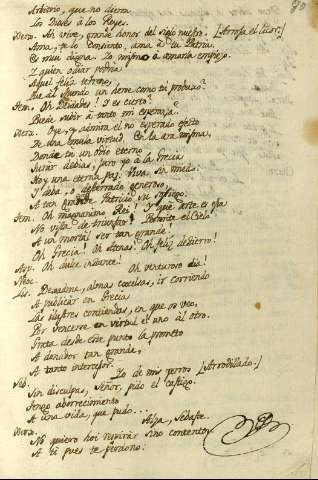 Arbitrio, que no dieron
80
Los Dioses à los Reyes.
Ah vive, grande honor del siglo nuestro. [Arroja el licor.]
Ama, yo lo consiento, ama à tu Patria.
Es mui digna. Yo mismo à amarla empiezo.
I quien odiar podria
Aquel feliz terreno,
Que al Mundo un heroe como tu produxo?
Tem. Oh Deidades! I es cierto?
Puede subir à tanto mi esperanza?
Oye, y admira el no esperado efecto
De una emula virtud. En la ara misma,
Donde tu un odio eterno
Jurar debias, juro yo à la Grecia
Hoy una eterna paz. Viva sin miedo.
I deba, o desterrado generoso,
A tan grande Patricio su sosiego.
Tem. Oh magnanimo Rei! I que arte es esa
No vista de triunfar! Permite el Cielo
A un mortal ser tan grande!
Oh Grecia! Oh Atenas! Oh feliz destierro!
Asp. Oh dulce instante!
Neoc. Oh venturoso dia!
Lis. Dexadme, almas excelsas, ir corriendo
A publicar en Grecia
Las ilustres contiendas, en que os veo,
Por vencerse en virtud el uno al otro.
Grata desde este punto la prometo
A donador tan grande,
A tanto intercesor.
Seb. Yo de mis yerros [Arrodillado.]
Sin disculpas, Señor, pido el castigo.
Tengo aborrecimiento
A una vida, que pudo...
Alza, Sebaste.
No quiero hoi respirar sino contentos.
A ti pues te perdono: